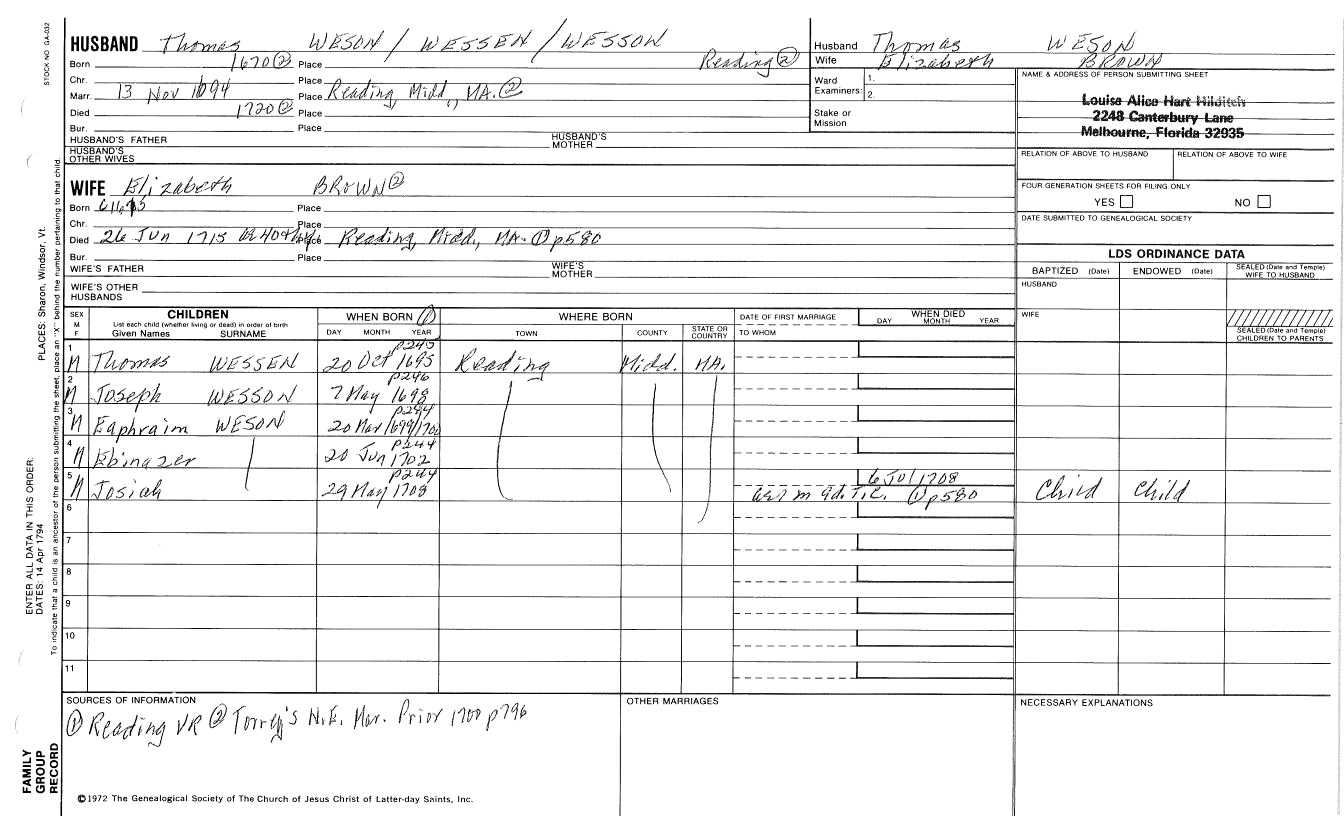 STOCK NO GA-032
HUSBAND Thomas WESON / WESSEN / WESSON
Born 1670② Place Reading②
Chr. Place
Marr. 13 Nov 1694 Place Reading, Midd., MA.②
Died 1720② Place
Bur. Place
HUSBAND'S FATHER HUSBAND'S MOTHER
HUSBAND'S OTHER WIVES
Husband Thomas WESON
Wife Elizabeth BROWN
Ward 1.
Examiners: 2.
Stake or Mission
NAME & ADDRESS OF PERSON SUBMITTING SHEET
Louise Alice Hart Hilditch
2248 Canterbury Lane
Melbourne, Florida 32935
RELATION OF ABOVE TO HUSBAND RELATION OF ABOVE TO WIFE
FOUR GENERATION SHEETS FOR FILING ONLY
YES NO
DATE SUBMITTED TO GENEALOGICAL SOCIETY
WIFE Elizabeth BROWN②
Born Place
Chr. Place
Died 26 Jun 1715 Place Reading, Midd., MA. ① p580
Bur. Place
WIFE'S FATHER WIFE'S MOTHER
WIFE'S OTHER HUSBANDS
LDS ORDINANCE DATA
BAPTIZED (Date) ENDOWED (Date) SEALED (Date and Temple) WIFE TO HUSBAND
HUSBAND
WIFE
SEALED (Date and Temple) CHILDREN TO PARENTS
SEX M F
CHILDREN
List each child (whether living or dead) in order of birth
Given Names SURNAME
WHEN BORN ①
DAY MONTH YEAR
WHERE BORN
TOWN COUNTY STATE OR COUNTRY
DATE OF FIRST MARRIAGE
TO WHOM
WHEN DIED
DAY MONTH YEAR
p245
1 M Thomas WESSEN 20 Oct 1695 Reading Midd. MA.
p246
2 M Joseph WESSON 7 May 1698
p244
3 M Eaphraim WESON 20 Mar 1699/1700
p244
4 M Ebinazer 20 Jun 1702
p244 6 Jul 1708
5 M Josiah 29 May 1708 ae 1 m 9d. T.C. ① p580 Child Child
6
7
8
9
10
11
SOURCES OF INFORMATION
① Reading VR ② Torrey's N.E. Mar. Prior 1700 p796
OTHER MARRIAGES
NECESSARY EXPLANATIONS
©1972 The Genealogical Society of The Church of Jesus Christ of Latter-day Saints, Inc.
FAMILY GROUP RECORD
ENTER ALL DATA IN THIS ORDER:
DATES: 14 Apr 1794
PLACES: Sharon, Windsor, Vt.
To indicate that a child is an ancestor of the person submitting the sheet, place an "X" behind the number pertaining to that child.